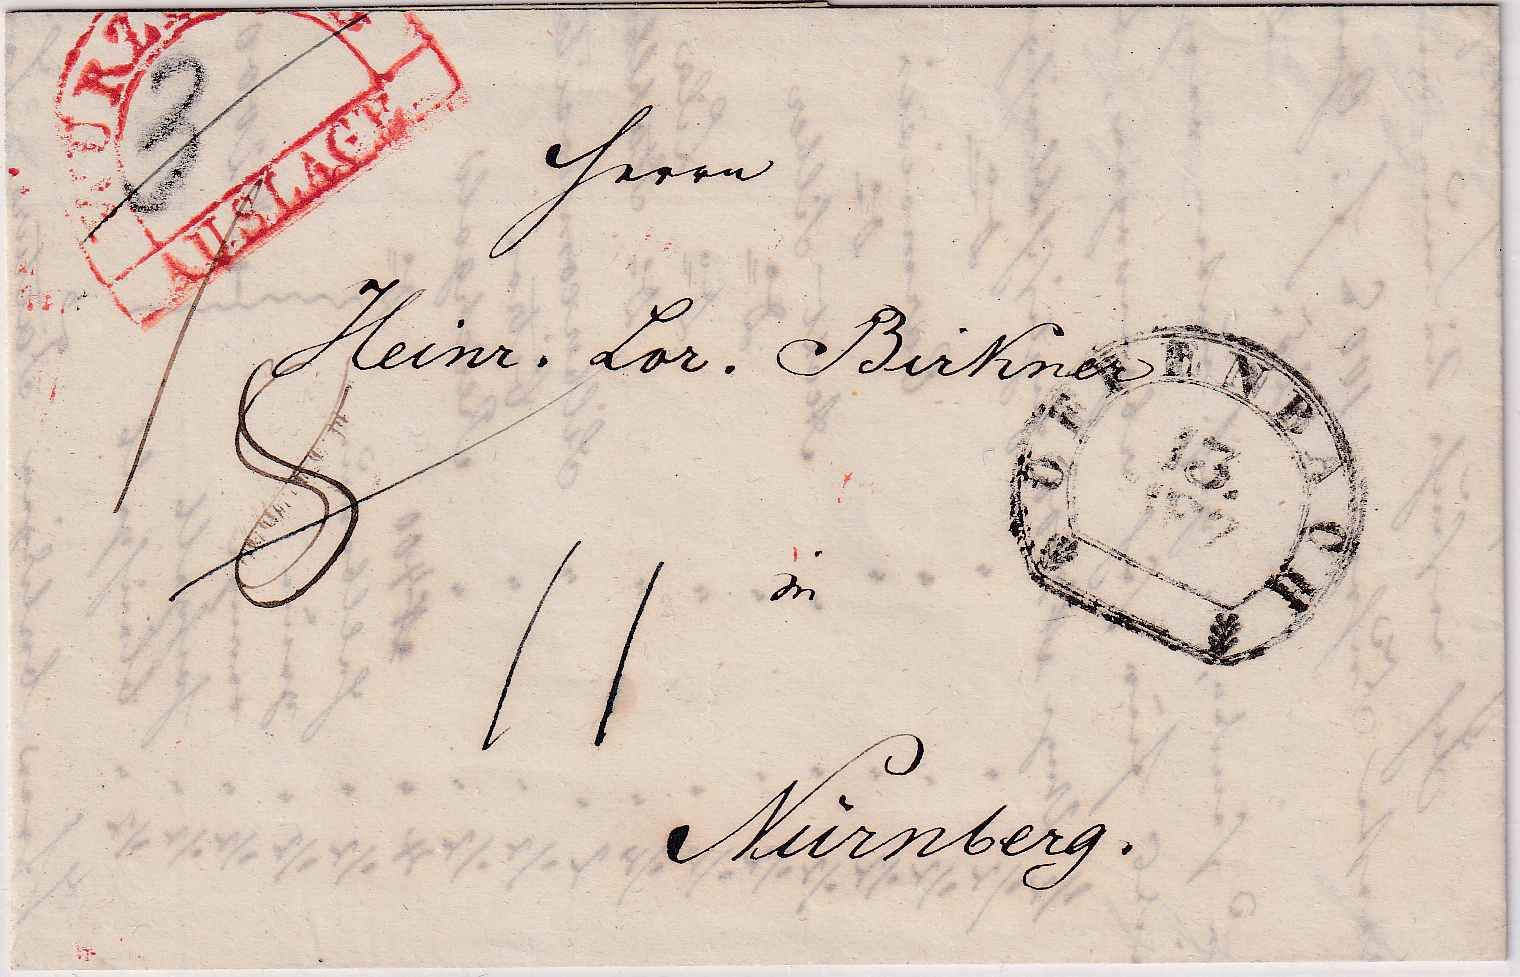 WURZ
3
AUSLAGE
Herrn
Heinr. Lor. Birkner
OFFENBACH
13.
8
in
Nürnberg.